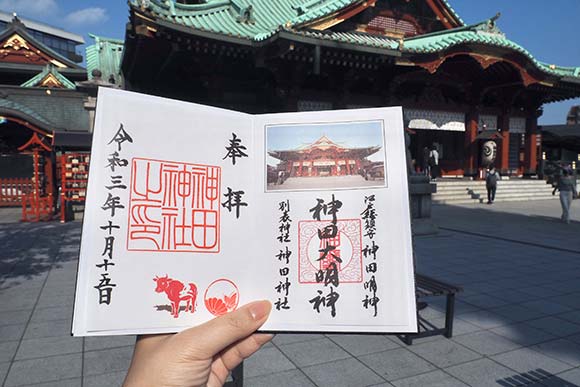 奉拝
神田
神社
之印
令和三年十月十五日
江戸総鎮守 神田明神
神田大明神
別表神社 神田神社